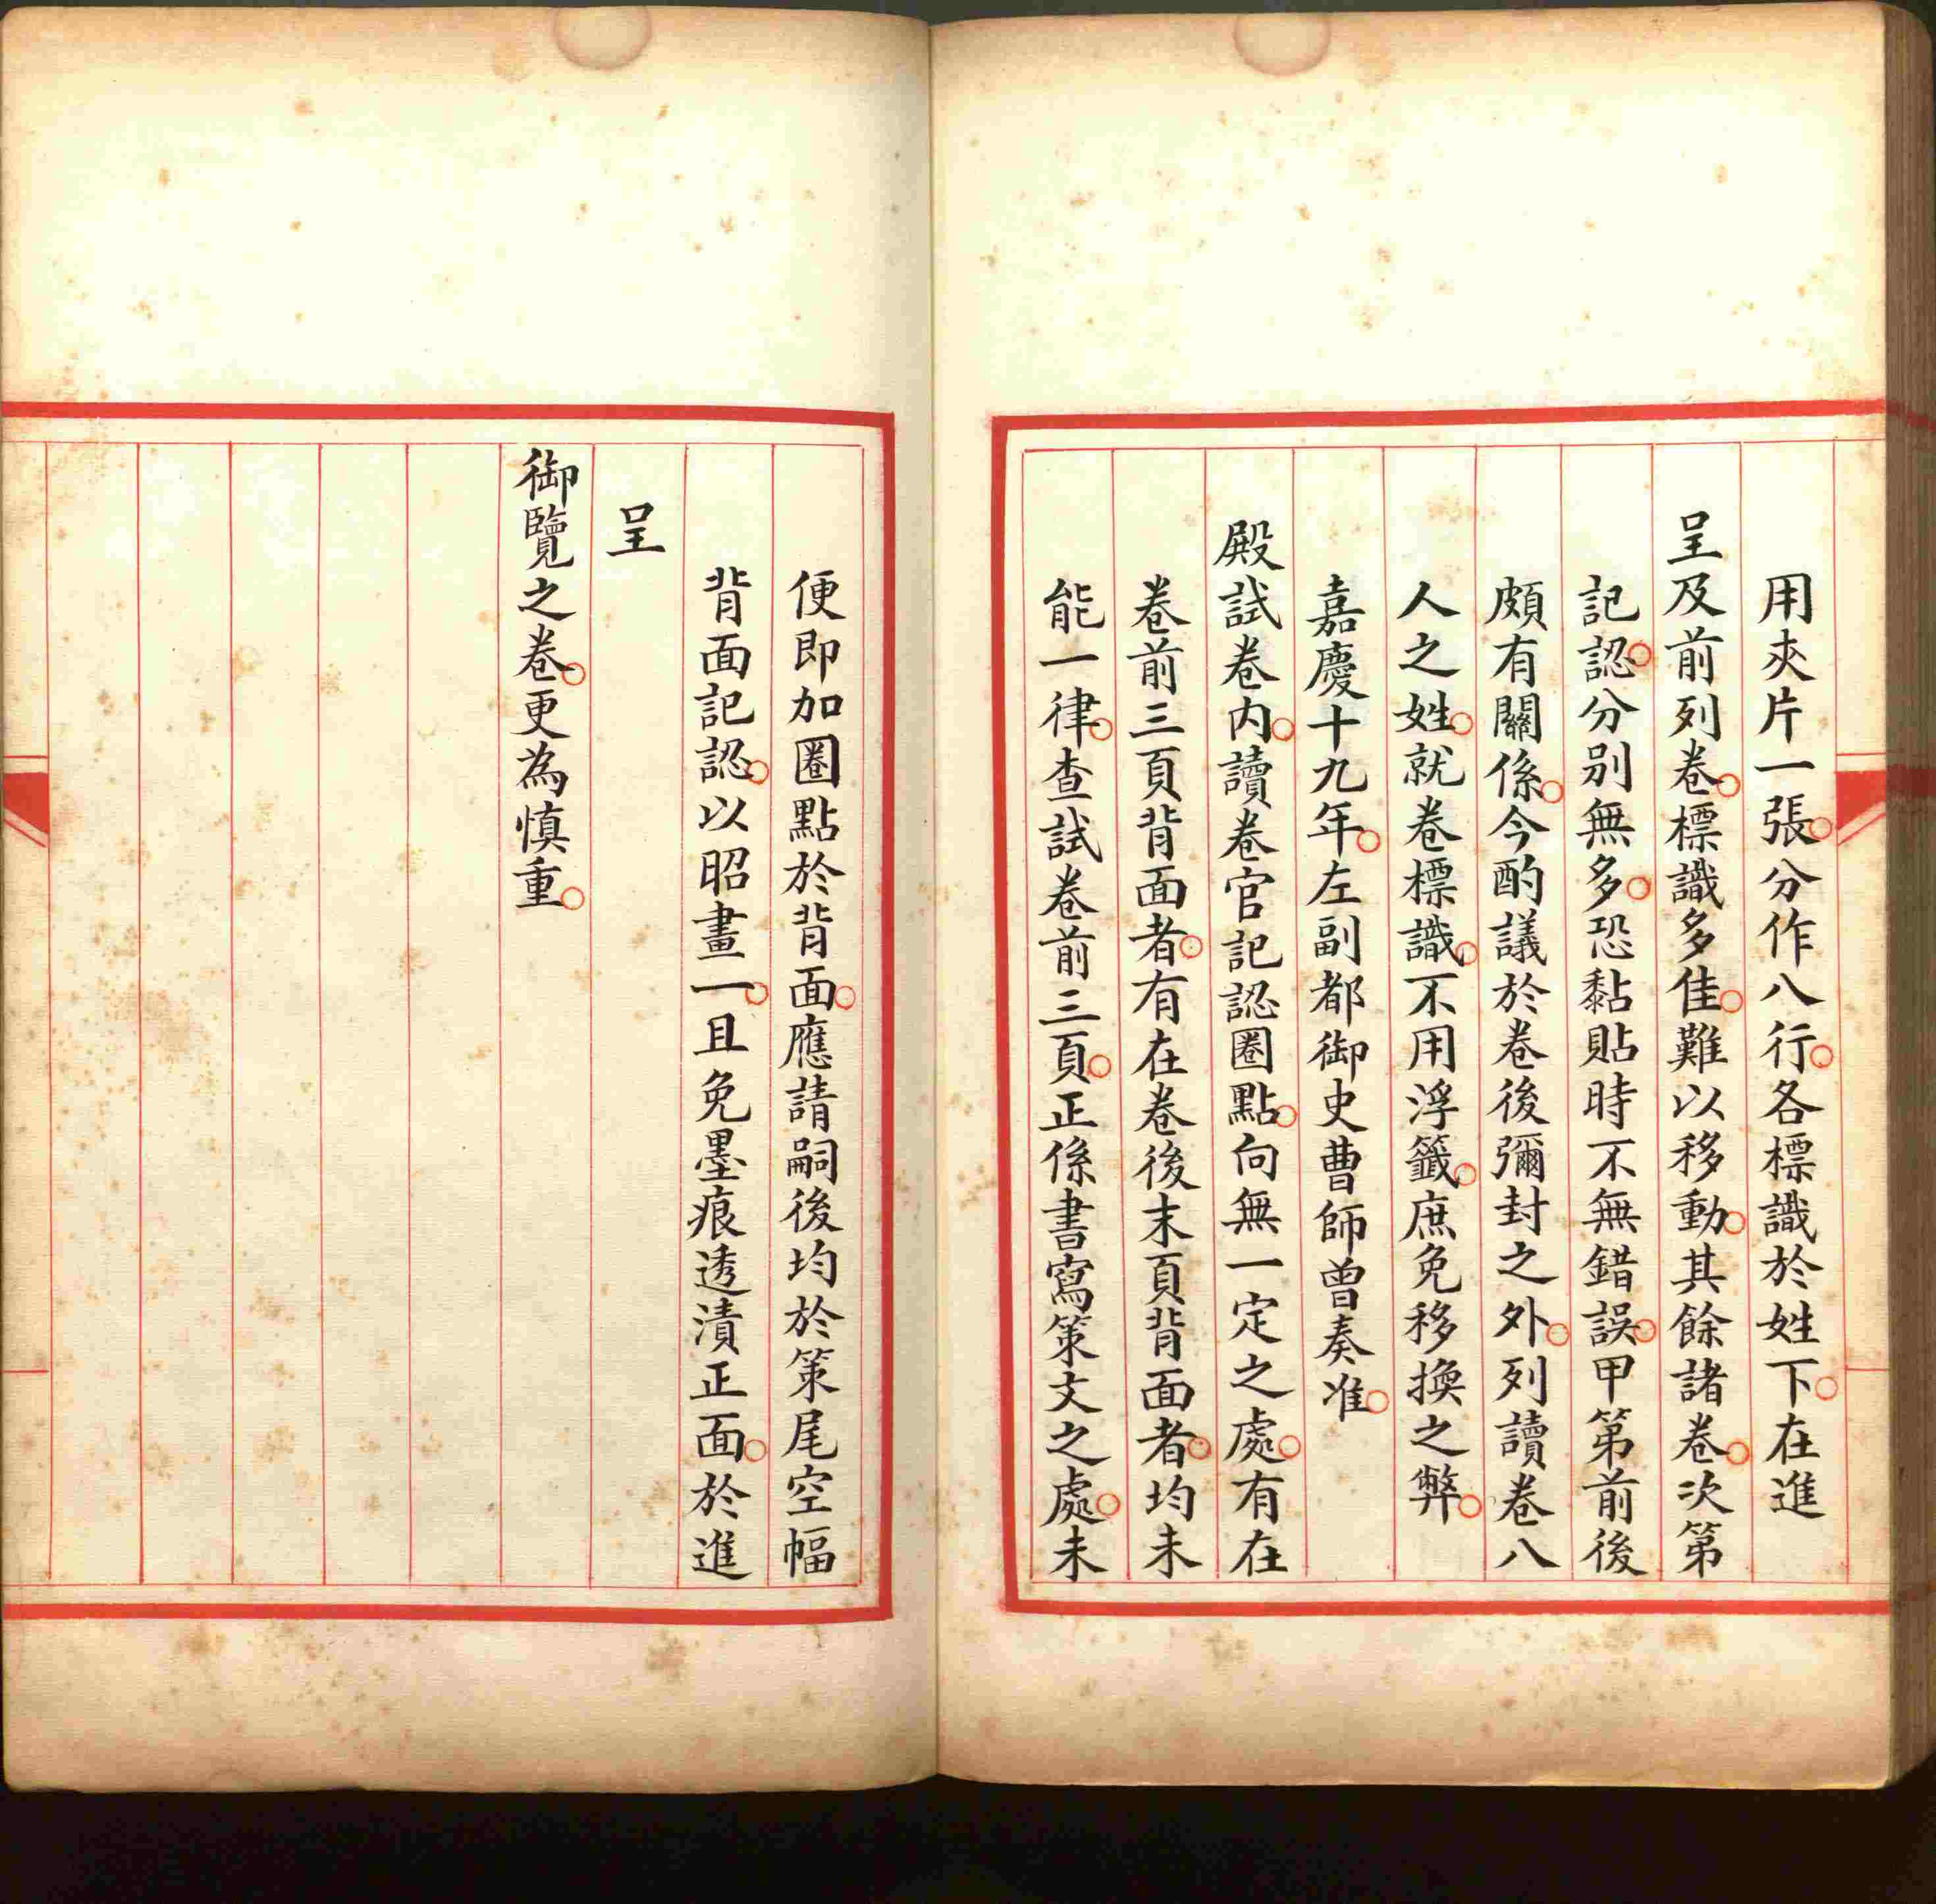 用夾片一張分作八行各標識於姓下在進
呈及前列卷標識多佳難以移動其餘諸卷次第
記認分别無多恐黏貼時不無錯誤甲第前後
頗有關係今酌議於卷後彌封之外列讀卷八
人之姓就卷標識不用浮籤庶免移換之弊
嘉慶十九年左副都御史曹師曾奏准
殿試卷内讀卷官記認圈點向無一定之處有在
卷前三頁背面者有在卷後末頁背面者均未
能一律查試卷前三頁正係書寫策文之處未
便即加圈點於背面應請嗣後均於策尾空幅
背面記認以昭畫一且免墨痕透漬正面於進
呈
御覽之卷更為慎重